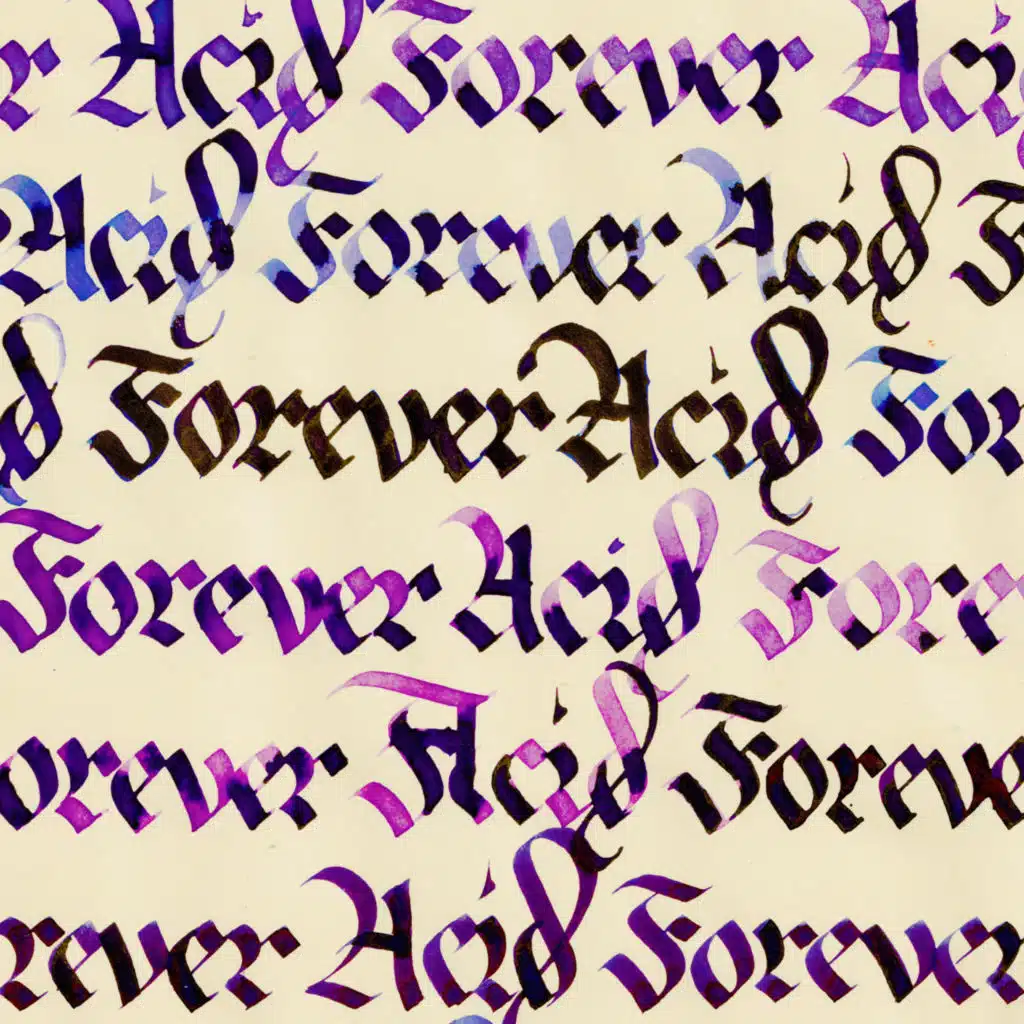 r Acid Forever Acid
Acid Forever Acid F
d Forever Acid For
Forever Acid Fore
orever Acid Foreve
rever Acid Forever